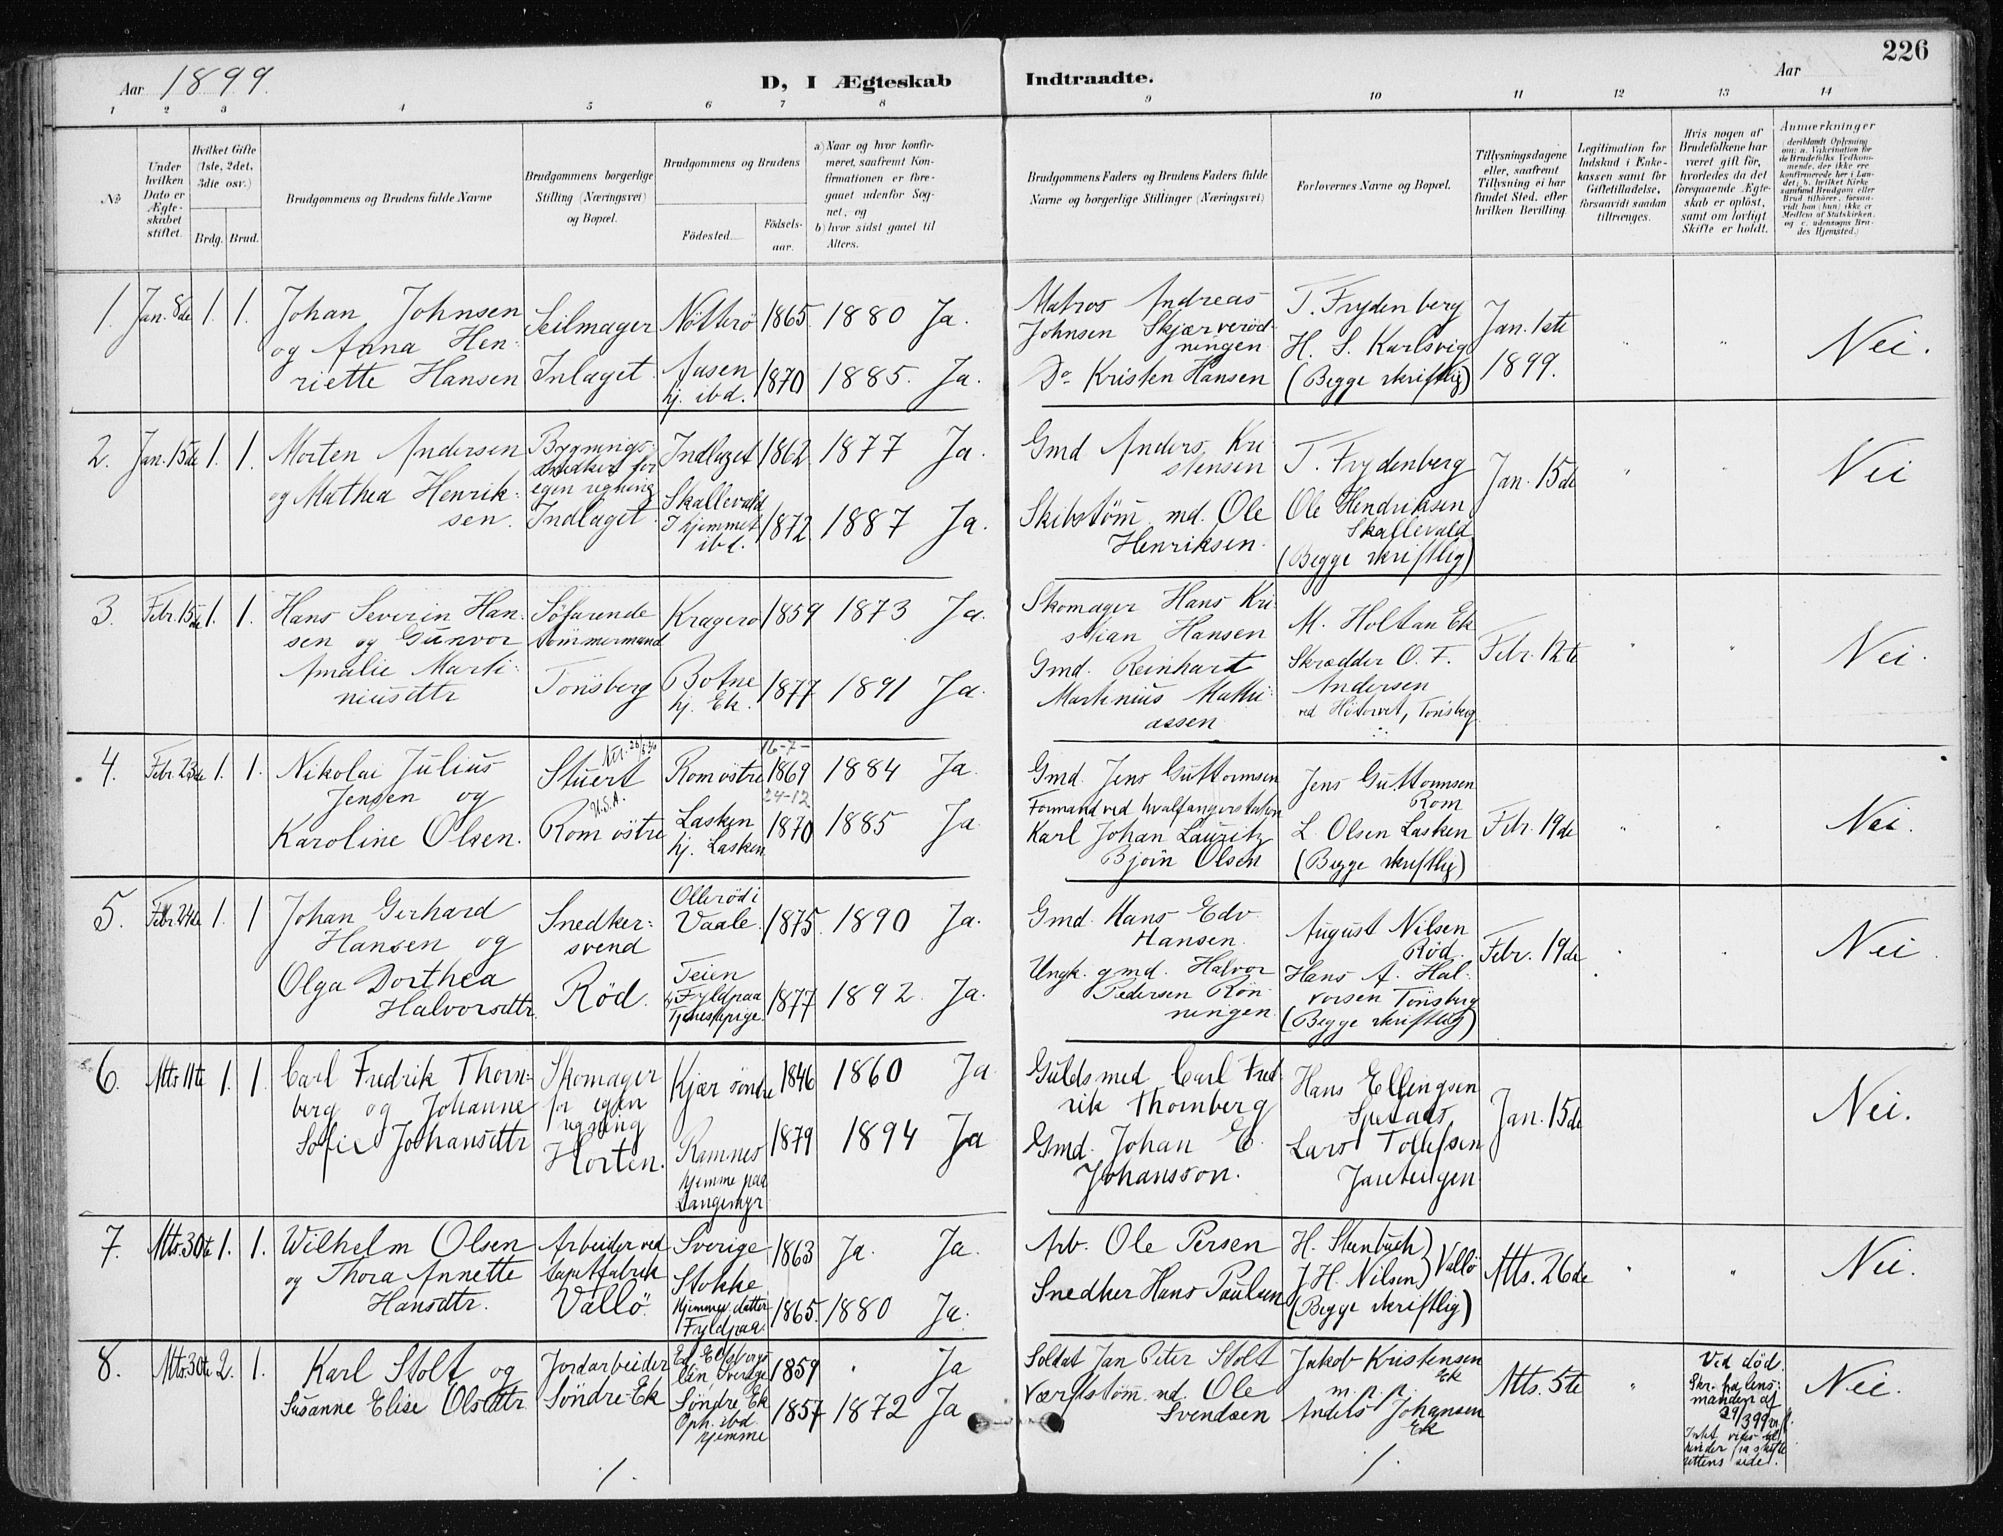 226
Aar 1899.
D, I Ægteskab Indtraadte.
Aar
1 2 3 4 5 6 7 8 9 10 11 12 13 14
№
Under hvilken Dato er Ægteskabet stiftet.
Hvilket Gifte (1ste, 2det, 3die osv.)
Brdg. Brud.
Brudgommens og Brudens fulde Navne
Brudgommens borgerlige Stilling (Næringsvei) og Bopæl.
Brudgommens og Brudens
Fødested.
Fødselsaar.
a) Naar og hvor konfirmeret, saafremt Konfirmationen er foregaaet udenfor Sognet, og
b) hvor sidst gaaet til Alters.
Brudgommens Faders og Brudens Faders fulde Navne og borgerlige Stillinger (Næringsvei)
Forlovernes Navne og Bopæl.
Tillysningsdagene eller, saafremt Tillysning ei har fundet Sted, efter hvilken Bevilling.
Legitimation for Indskud i Enkekassen samt for Giftetilladelse, forsaavidt saadan tiltrænges.
Hvis nogen af Brudefolkene har været gift før, hvorledes da det foregaaende Ægteskab er opløst, samt om lovligt Skifte er holdt.
Anmærkninger
1. Jan. 8de 1. 1.
Johan Johnsen
og Anna Hen-
riette Hansen
Seilmager
Inlaget.
Nötterö 1865. 1880 Ja.
Aasen
hj. ibd. 1870 1885. Ja.
Matros Andreas
Johnsen Skjærverød-
ningen
Do Kristen Hansen
T. Frydenberg
H. S. Karlsvig
(Begge skriftlig)
Jan. 1ste
1899.
Nei.
2. Jan. 15de 1. 1.
Morten Andersen
og Mathea Henrik-
sen.
Bygnings-
snedker for
egen regning
Indlaget.
Indlaget 1862 1877 Ja.
Skallevald
I hjemmet
ibd. 1872 1887 Ja.
Gmd Anders Kri-
stensen
Skibstøm. md. Ole
Henriksen.
T. Frydenberg
Ole Hendriksen
Skallevald
(Begge skriftlig)
Jan. 15de
Nei
3. Febr. 15de 1. 1.
Hans Severin Han-
sen og Gunvor
Amalie Marti-
niusdtr
Söfarende
tømmermand
Tønsberg
Kragerø 1859 1873 Ja.
Botne
hj. Ek. 1877 1891 Ja.
Skomager Hans Kri-
stian Hansen
Gmd. Reinhart
Martinius Mathi-
assen
M. Holtan Ek
Skrædder O. T.
Andersen
Tønsberg
Febr. 12te
Nei.
4. Febr. 23de 1. 1.
Nikolai Julius
Jensen og
Karoline Olsen.
Stuert
U.S.A.
Rom østre
Rom østre 16-7-1869 1884 Ja.
Lasken
hj. Lasken 24-12 1870 1885 Ja.
Gmd. Jens Guttormsen
Formand ved hvalfangerstation
Karl Johan Lauritz
Bjørn Olsen
Jens Guttormsen
Rom
L. Olsen Lasken
(Begge skriftlig)
Febr. 19de
Nei.
5. Febr. 24de 1. 1
Johan Gerhard
Hansen og
Olga Dorthea
Halvorsdtr.
Snedker-
svend
Rød.
Ollerød i
Vaale. 1875. 1890 Ja.
Teien
Fyldpaa
Tjenestepige. 1877 1892. Ja.
Gmd. Hans Edv.
Hansen.
Ungk. gmd. Halvor
Pedersen Røn-
ningen
August Nilsen
Rød.
Hans A. Hal-
vorsen Tønsberg
(Begge skriftlig)
Febr. 19de
Nei
6. Mts 11te 1. 1.
Carl Fredrik Thorn-
berg og Johanne
Sofie Johansdtr
Skomager
for egen
regning
Horten.
Kjær søndre 1846 1860 Ja
Ramnes
hjemme paa
Langemyr 1879 1894 Ja
Guldsmed Carl Fred-
rik Thornberg
Gmd. Johan E.
Johansson.
Hans Ellingsen
Lars Tollefsen
Jan. 15de
Nei.
7. Mts. 30te 1. 1.
Wilhelm Olsen
og Thora Annette
Hansdtr.
Arbeider ved
tapetfabrik
Vallö
Sverige 1863 Ja. Ja.
Stokke
hjemmev. datter
Fyldpaa. 1865. 1880 Ja.
Arb. Ole Persen
Snedker Hans Paulsen
H. Steinbuch
J. H. Nilsen Vallö
(Begge skriftlig)
Mts. 26de
Nei.
8. Mts. 30te 2. 1.
Karl Stolt og
Susanne Elise Olsdtr
Jordarbeider
Söndre-Ek
1859 Ja
Söndre Ek
Oph. ibd.
hjemme 1857 1872 Ja
Soldat Jan Peter Stolt
Værftstøm. md. Ole
Svendsen
Jakob Kristensen
Ek
m. p. p.
Anders Johansen
Ek
Mts. 5te
Ved død.
Skr. fra lens-
manden af
29/3 99
Nei.